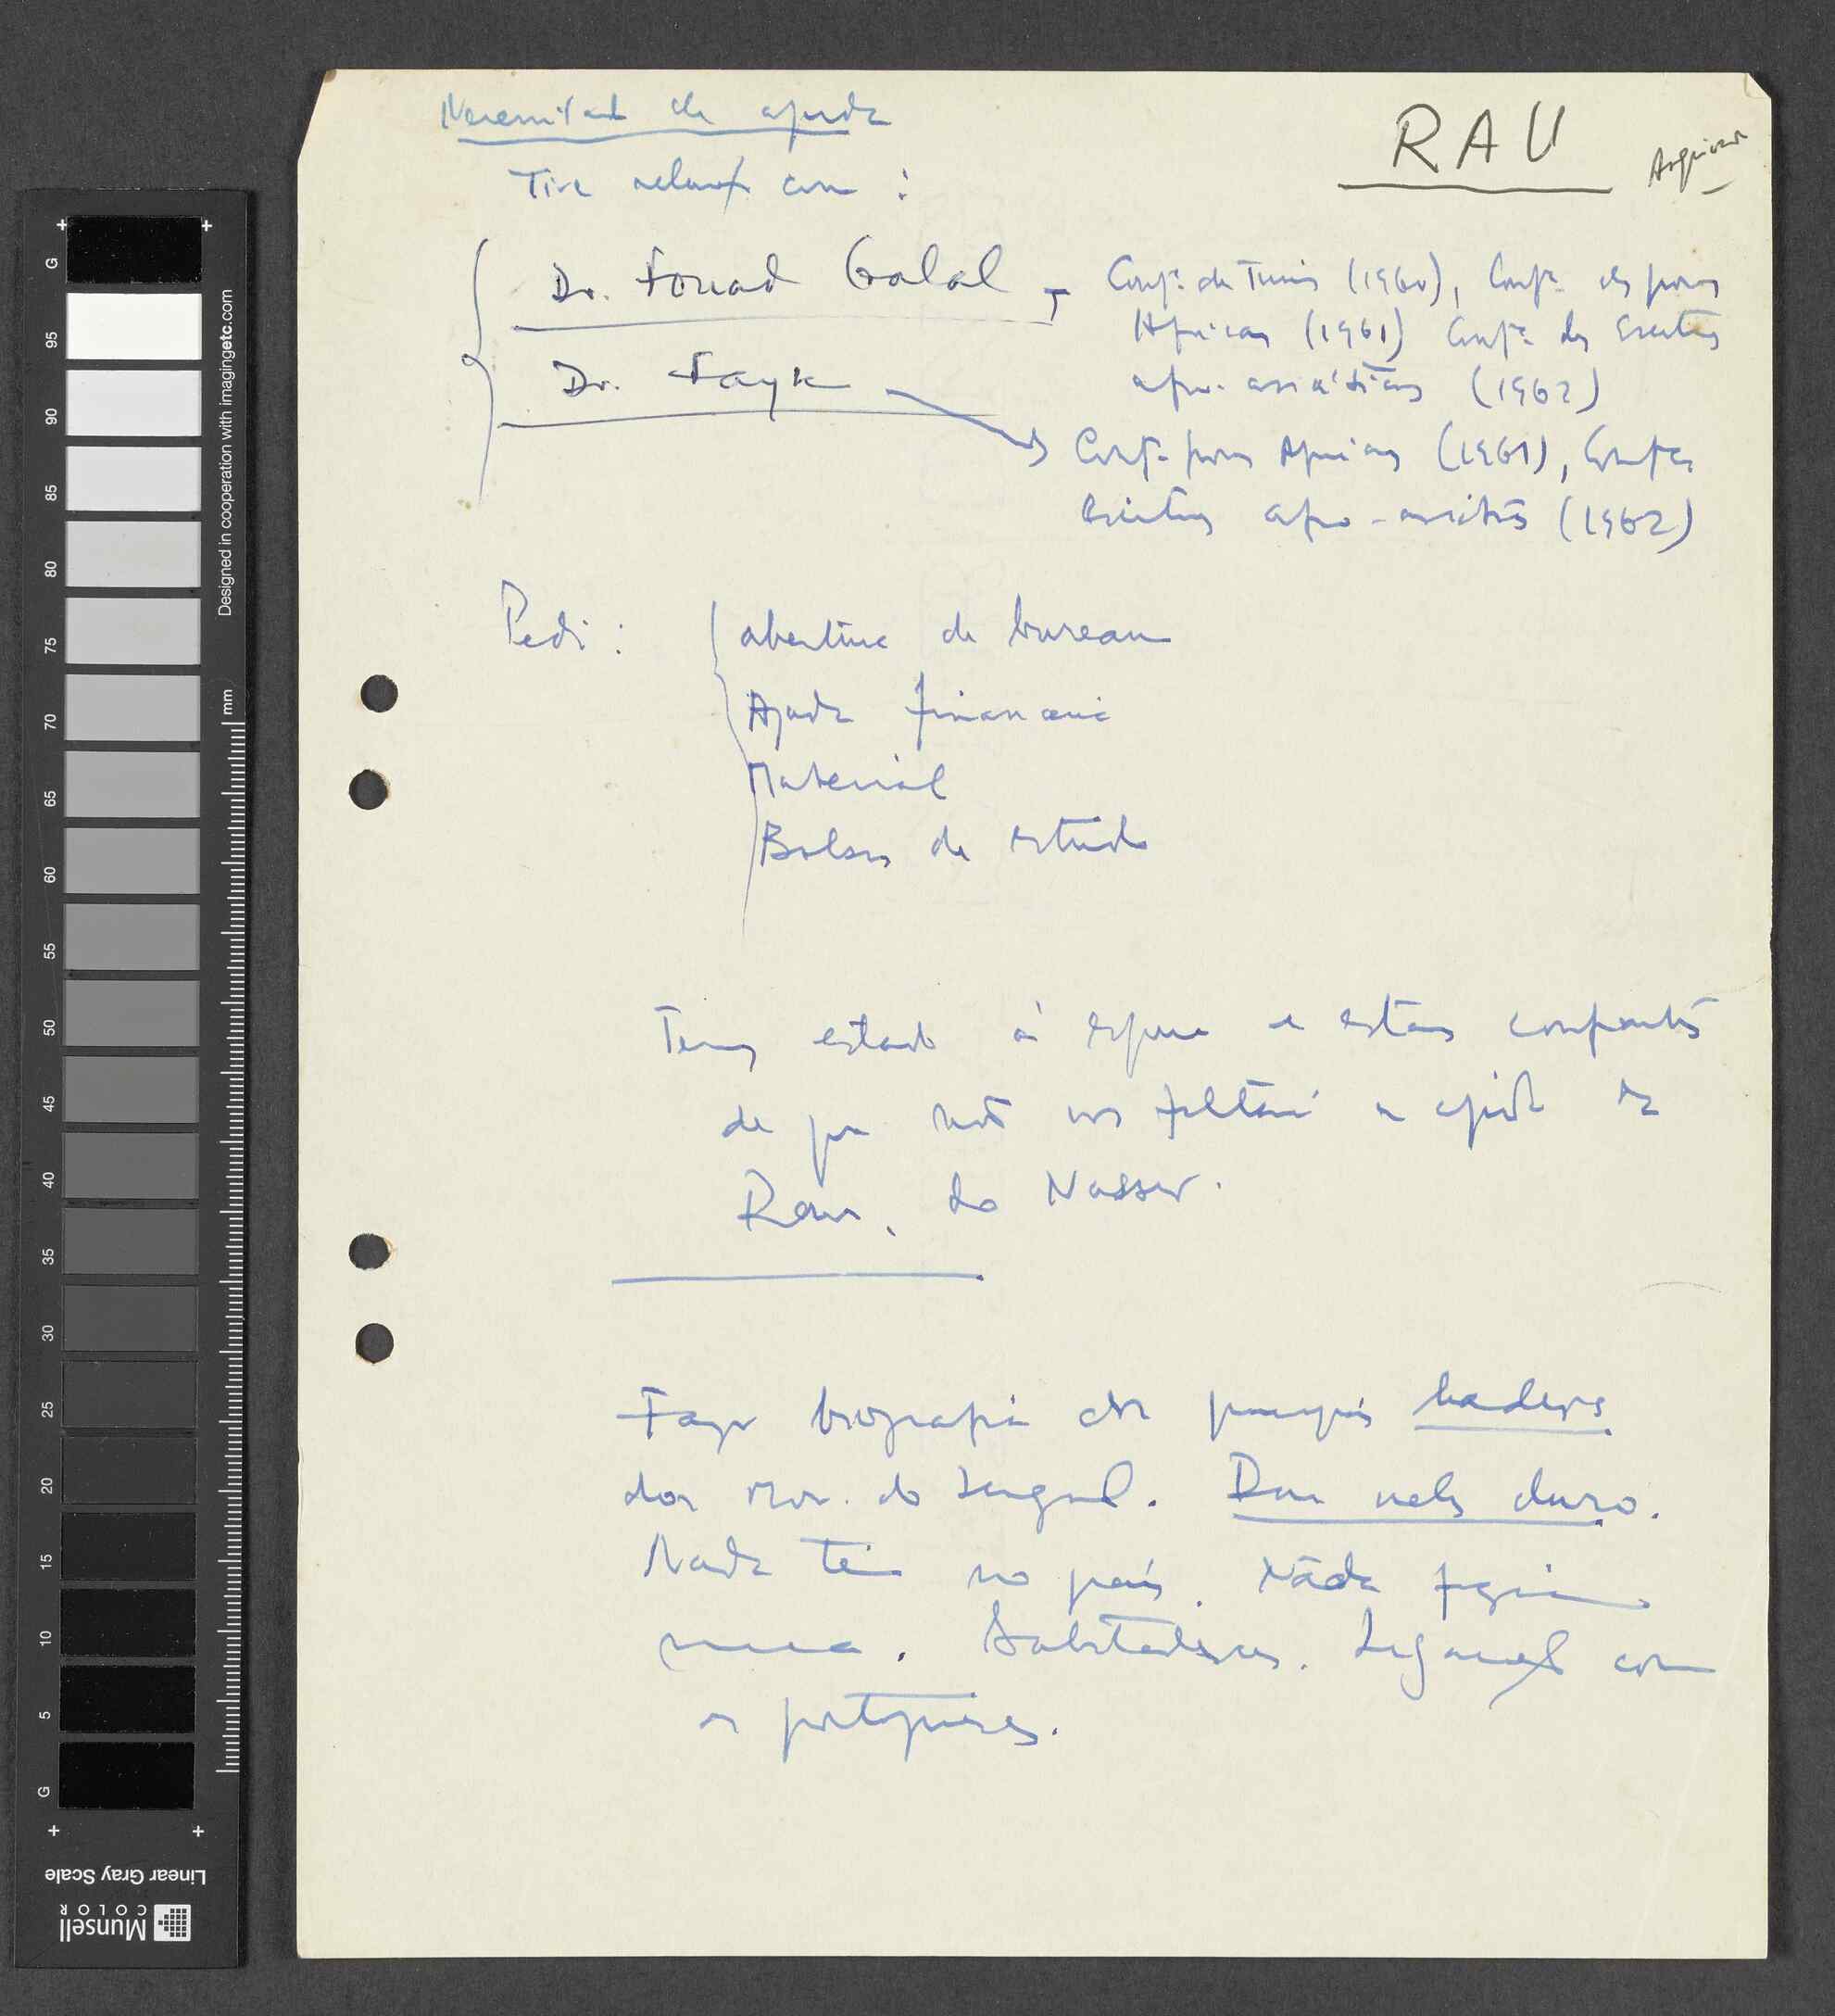 Necessidade de ajuda
RAU
Arquivar
Tive relações com :
Dr. Fouad Galal → Confª de Tunis (1960), Confª dos povos
Africanos (1961) Confª dos Escritores
afro-asiáticos (1962)
Dr. Fayk → Confª povos Africanos (1961), Confª
Escritores afro-asiáticos (1962)
Pedi : abertura de bureau
Ajuda financeira
Material
Bolsas de estudo
Temos estado à espera e estamos confiantes
de que não nos faltará a ajuda da
Rau, do Nasser.
Faço biografia dos principais leaders
dos mov. do Senegal. Dou neles duro.
Nada têm no país. Nada fazem
nunca. Sabotadores. Ligações com
os portugueses.
G
95
90
85
80
75
70
65
60
55
50
45
40
35
30
25
20
15
10
5
G
mm
Designed in cooperation with imagingetc.com
Linear Gray Scale
Munsell
COLOR